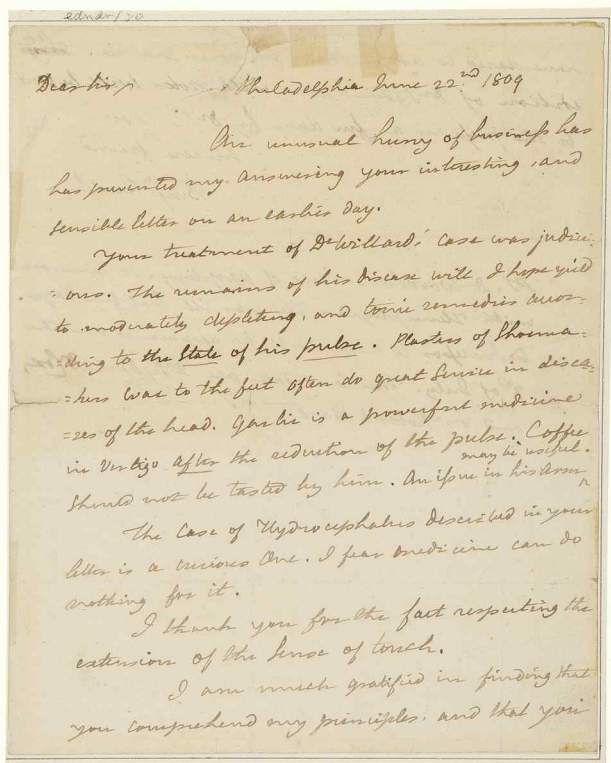 Dear sir, Philadelphia June 22nd 1809
An unusual hurry of business has
has prevented my answering your interesting, and
sensible letter on an earlier day.
Your treatment of Dr Willards' case was judici-
=ous. The remains of his disease will I hope yield
to moderately depleting, and tonic remedies accor-
=ding to the State of his pulse. Plasters of Shoema-
=kers wax to the feet often do great Service in disea-
=zes of the head. Garlic is a powerful medicine
in Vertigo after the reduction of the pulse. Coffee
should not be tasted by him. An issue in his Arm may be useful.
The Case of Hydrocephalus described in your
letter is a curious One. I fear medicine can do
nothing for it.
I thank you for the fact respecting the
extension of the Sense of touch.
I am much gratified in finding that
you comprehend my principles, and that you